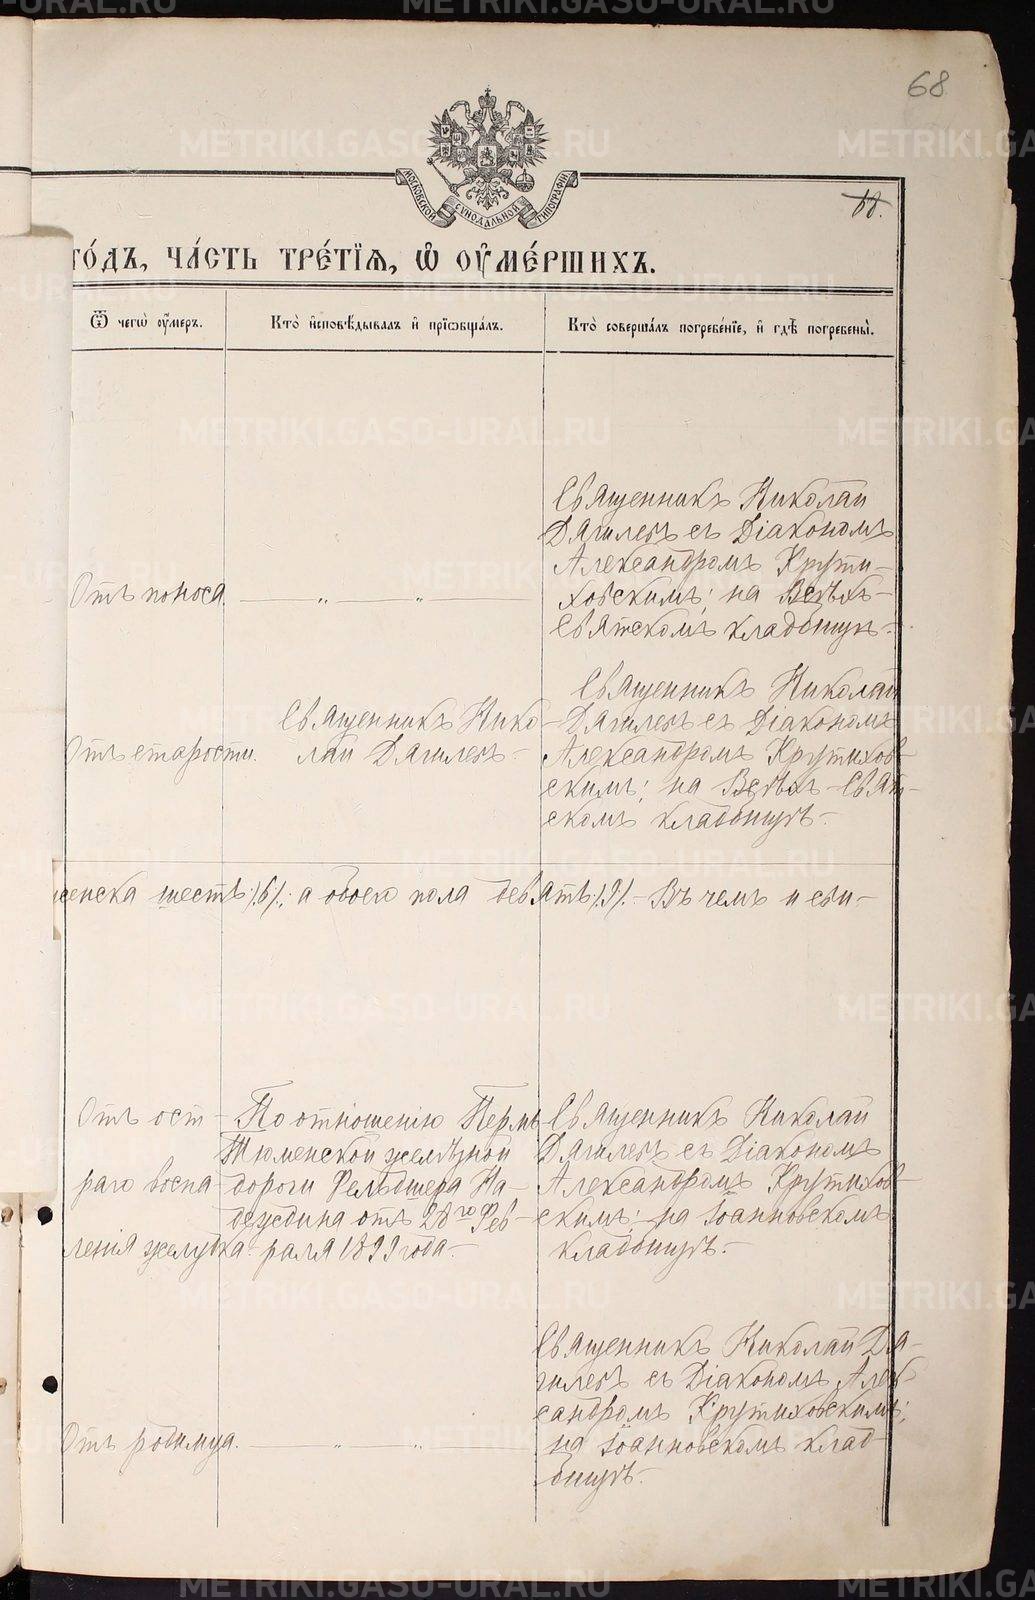 68
МОСКОВСКОЙ СѴНОДАЛЬНОЙ ТИПОГРАФІИ
68.
го́дъ, ча́сть тре́тїѧ, ѡ҆ ᲂу҆ме́ршихъ.
Ѿ чегѡ̀ ᲂу҆́меръ.
Кто̀ и҆сповѣ́дывалъ и҆ прїѻбща́лъ.
Кто̀ соверша́лъ погребе́нїе, и҆ гдѣ̀ погребены̀.
Отъ поноса.
— „ — „ —
Священникъ Николай
Дягилевъ съ Діакономъ
Александромъ Крути-
ховскимъ; на Всѣхъ-
Святскомъ кладбищѣ.
Отъ старости.
Священникъ Нико-
лай Дягилевъ.-
Священникъ Николай
Дягилевъ съ Діакономъ
Александромъ Крутихов-
скимъ; на Всѣхъ-Свят-
скомъ кладбищѣ.-
женска шесть /:6/: а обоего пола девять /:9/.- Въ чемъ и сви-
Отъ ост-
раго воспа-
ленія желудка.
По отношенію Пермь-
Тюменской желѣзной
дороги Фельдшера На-
деждина отъ 28го Фев-
раля 1899 года.-
Священникъ Николай
Дягилевъ съ Діакономъ
Александромъ Крутихов-
скимъ; на Іоанновскомъ
кладбищѣ.-
Отъ родимца.
— „ — „ —
Священникъ Николай Дя-
гилевъ съ Діакономъ Алек-
сандромъ Крутиховскимъ;
на Іоанновскомъ клад-
бищѣ.-
METRIKI.GASO-URAL.RU